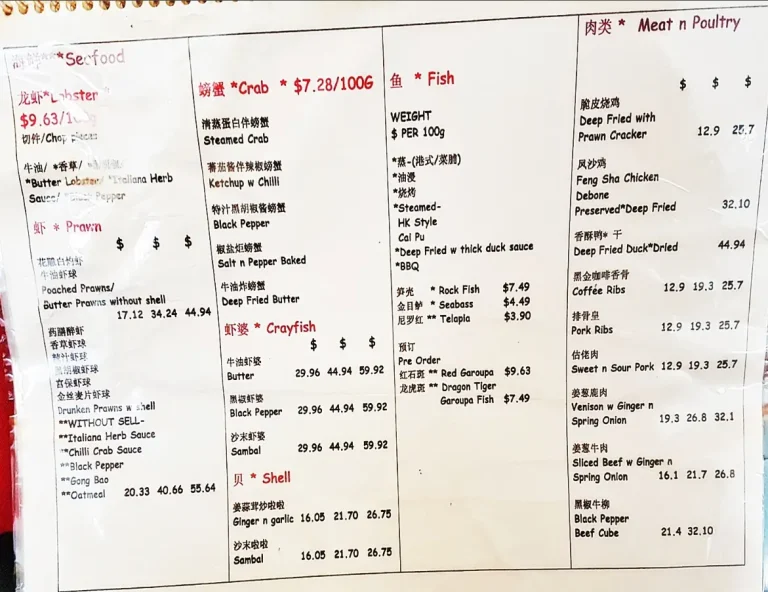 海鲜 **Seafood
龙虾*Lobster *
$9.63/100g
切件/Chop pieces
牛油/ *香草/
*Butter Lobster/ *Italiana Herb
Sauce/ *Black Pepper
虾 * Prawn
$ $ $
花雕白灼虾
牛油虾球
Poached Prawns/
Butter Prawns without shell
17.12 34.24 44.94
药膳醉虾
香草虾球
辣汁虾球
黑胡椒虾球
宫保虾球
金丝麦片虾球
Drunken Prawns w shell
**WITHOUT SELL-
**Italiana Herb Sauce
**Chilli Crab Sauce
**Black Pepper
**Gong Bao
**Oatmeal 20.33 40.66 55.64
螃蟹 *Crab * $7.28/100G
清蒸蛋白伴螃蟹
Steamed Crab
蕃茄酱伴辣椒螃蟹
Ketchup w Chilli
特汁黑胡椒酱螃蟹
Black Pepper
椒盐炬螃蟹
Salt n Pepper Baked
牛油炸螃蟹
Deep Fried Butter
虾婆 * Crayfish
$ $ $
牛油虾婆
Butter 29.96 44.94 59.92
黑椒虾婆
Black Pepper 29.96 44.94 59.92
沙末虾婆
Sambal 29.96 44.94 59.92
贝 * Shell
姜蒜茸炒啦啦
Ginger n garlic 16.05 21.70 26.75
沙末啦啦
Sambal 16.05 21.70 26.75
鱼 * Fish
WEIGHT
$ PER 100g
*蒸-(港式/菜脯)
*油浸
*烧烤
*Steamed-
HK Style
Cai Pu
*Deep Fried w thick duck sauce
*BBQ
笋壳 * Rock Fish $7.49
金目鲈 * Seabass $4.49
尼罗红 ** Telapia $3.90
预订
Pre Order
红石斑 ** Red Garoupa $9.63
龙虎斑 ** Dragon Tiger
Garoupa Fish $7.49
肉类 * Meat n Poultry
$ $ $
脆皮烧鸡
Deep Fried with
Prawn Cracker 12.9 25.7
风沙鸡
Feng Sha Chicken
Debone
Preserved*Deep Fried 32.10
香酥鸭* 干
Deep Fried Duck*Dried 44.94
黑金咖啡香骨
Coffée Ribs 12.9 19.3 25.7
排骨皇
Pork Ribs 12.9 19.3 25.7
咕佬肉
Sweet n Sour Pork 12.9 19.3 25.7
姜葱鹿肉
Venison w Ginger n
Spring Onion 19.3 26.8 32.1
姜葱牛肉
Sliced Beef w Ginger n
Spring Onion 16.1 21.7 26.8
黑椒牛柳
Black Pepper
Beef Cube 21.4 32.10